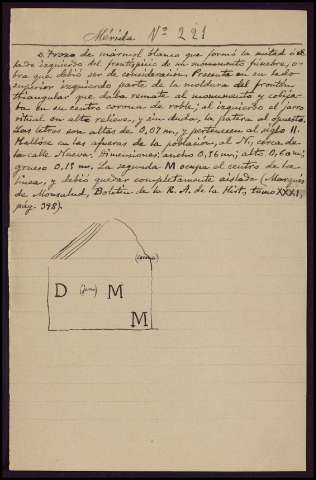 Mérida Nº 221
« Trozo de mármol blanco que formó la mitad ó el
lado izquierdo del frontispicio de un monumento fúnebre, o-
bra que debió ser de consideracion. Presenta en su lado
superior izquierdo parte de la moldura del frontón
triangular que daba remate al monumento y cobija-
ba en su centro corona de roble; al izquierdo el jarro
ritual en alto relieve, y sin duda, la pátera al opuesto.
Las letras son altas de 0,07 m, y pertenecen al siglo II.
Hallóse en las afueras de la población, al N., cerca de
la calle Nueva. Dimensiones: ancho 0,56 m; alto, 0,60 m;
grueso 0,15 m. La segunda M ocupa el centro de la
línea, y debió quedar completamente aislada (Marqués
de Monsalud, Boletin de la R. A. de la Hist, tomo XXXI,
pág. 398).
(corona)
D (jarro) M
M